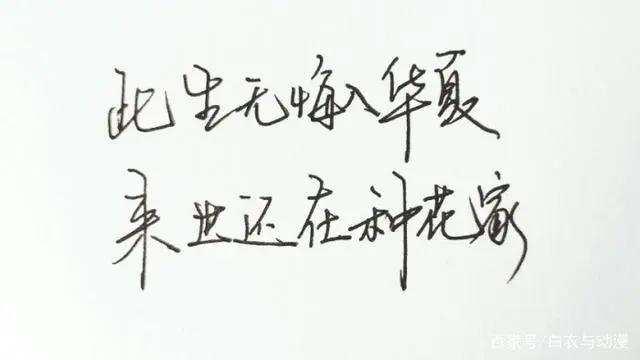 此生无悔入华夏
来世还在种花家
百家号/白衣与动漫